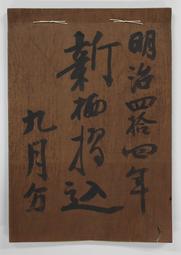 明治四拾四年
新栖摺込
九月分